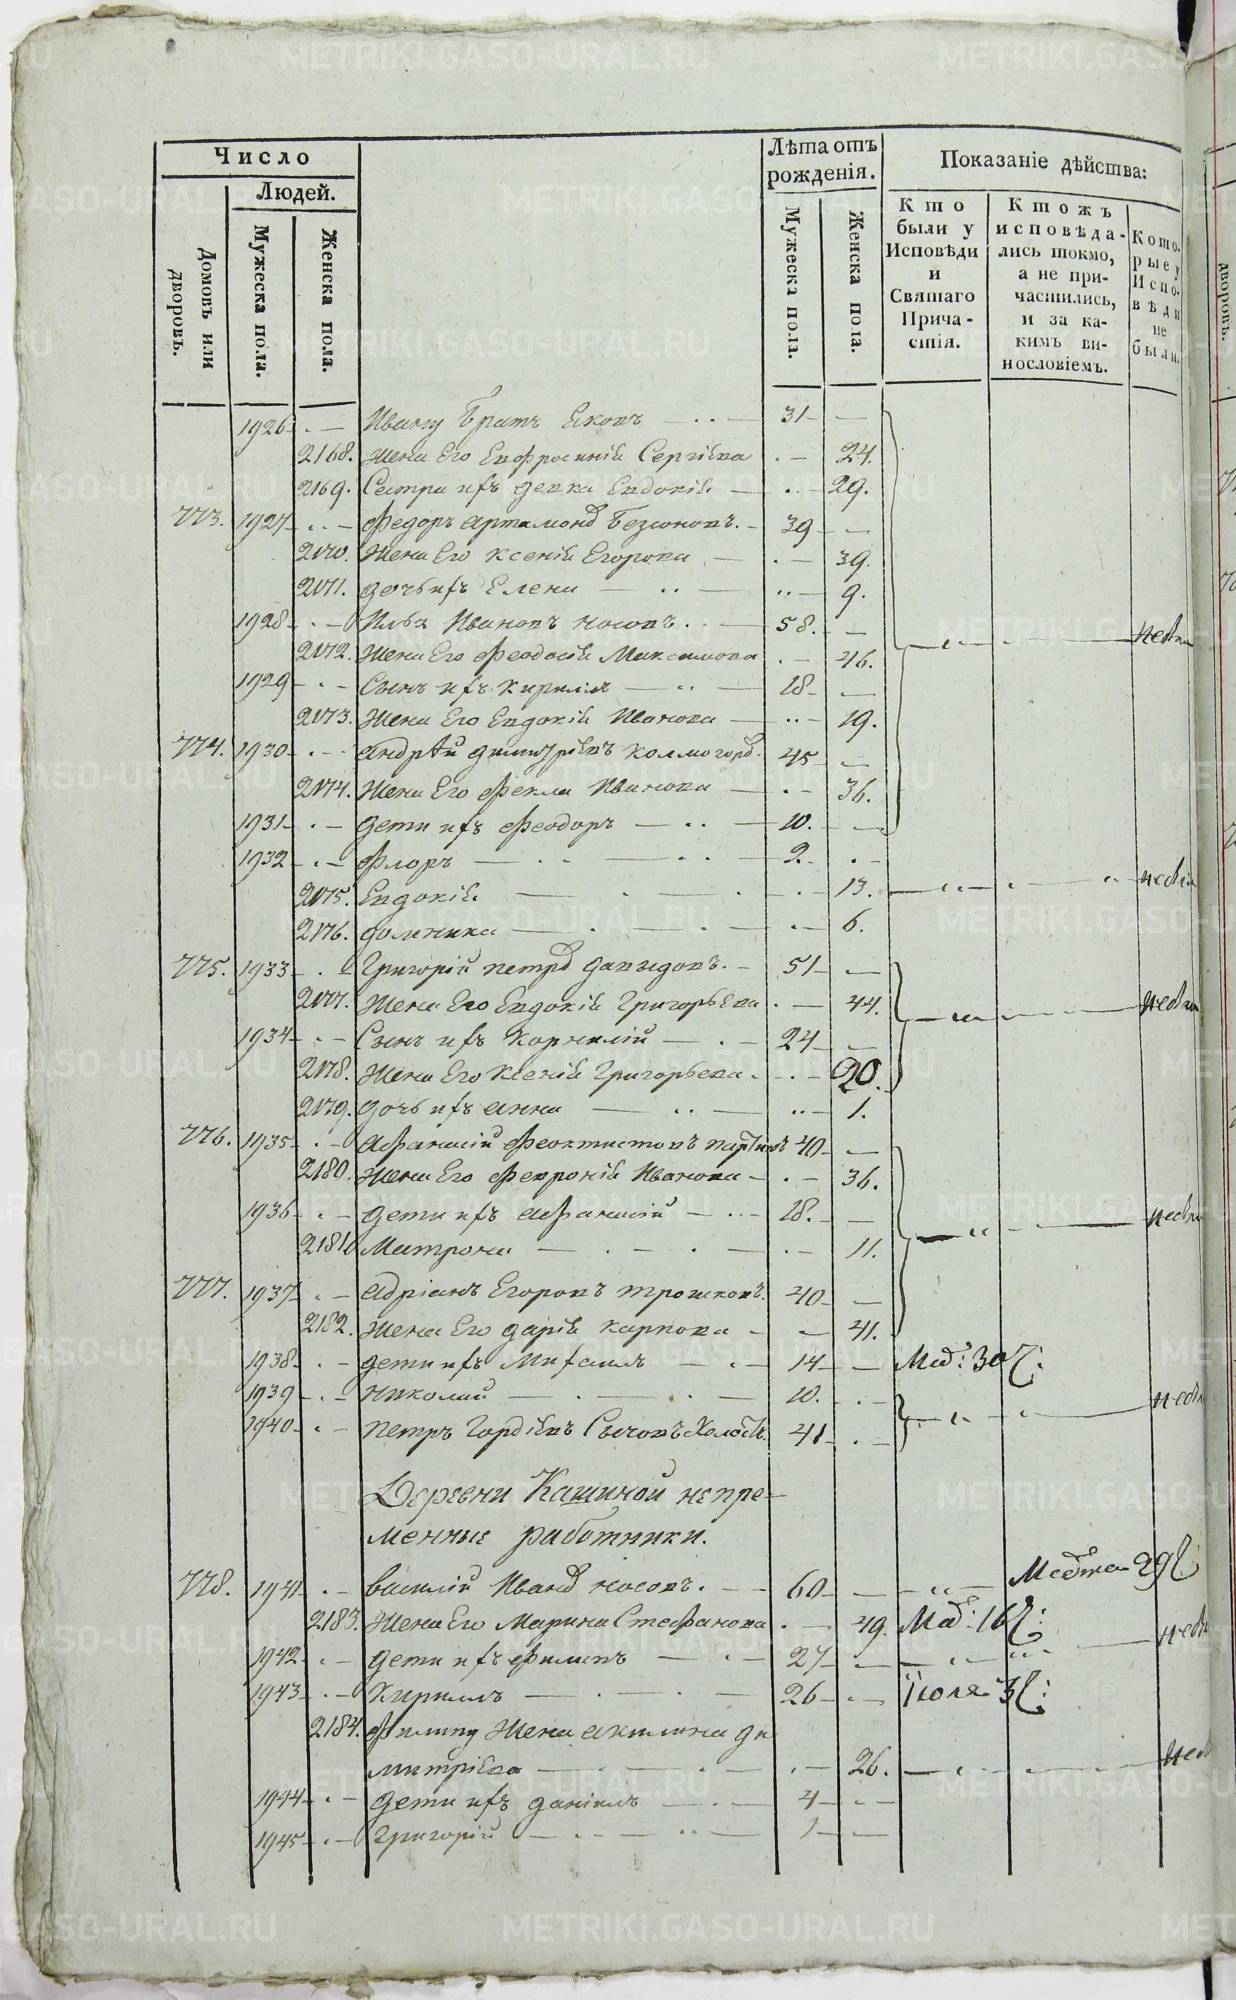 Число
Людей.
Домовъ или дворовъ.
Мужеска пола.
Женска пола.
Лѣта отъ рожденія.
Мужеска пола.
Женска пола.
Показаніе дѣйства:
Кто были у Исповѣди и Святаго Прича-стія.
Ктожъ исповѣда-лись токмо, а не при-частились, и за ка-кимъ ви-нословіемъ.
Кото-рые у Испо-вѣди не были.
1926 Ивану братъ Яковъ 31
2168. Жена Его Евфросинія Сергіева 24.
2169. Сестра ихъ девка Евдокія 29.
773. 1927 Федоръ Артамонов Безсоновъ. 39
2170. Жена Его Ксенія Егорова 39.
2171. Дочь ихъ Елена 9.
1928 Илья Ивановъ Носовъ 58.
2172. Жена Его Феодосія Максимова 46.
1929 Сынъ ихъ Кириллъ 18
2173. Жена Его Евдокія Иванова 19.
774. 1930 Андрѣй Димитріевъ Колмогоро. 45
2174. Жена Его Фекла Иванова 36.
1931 дети ихъ Феодоръ 10.
1932 Флоръ 2.
2175. Евдокія 13.
2176. Домника 6.
775. 1933 Григорій Петров Давыдовъ. 51
2177. Жена Его Евдокія Григорьева 44.
1934 Сынъ ихъ Корнилій 24
2178. Жена Его Ксенія Григорьева 20.
2179. Дочь ихъ Анна 1.
776. 1935 Афанасій Феоктистовъ 40
2180. Жена Его Февронія Иванова 36.
1936 дети ихъ Афанасій 18.
2181. Матрона 11.
777. 1937 Адріанъ Егоровъ Трошковъ. 40
2182. Жена Его Дарія Карпова 41.
1938 дети ихъ Михаилъ 14
1939 Николай 10.
1940 Петръ Гордѣевъ Сычовъ холостъ. 41
Деревни Кашиной непре-
менные работники.
778. 1941 Василій Иванов Носовъ. 60
2183. Жена Его Марина Стефанова 49.
1942 дети ихъ Филипъ 27
1943 Кириллъ 26 Іюля 3
2184. Филипу Жена Акилина Ди
митріева 26.
1944 дети ихъ Даніилъ 4
1945 Григорій 1
METRIKI.GASO-URAL.RU